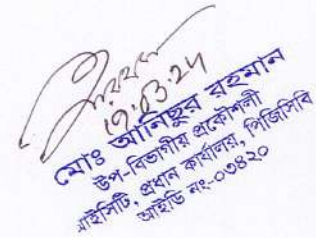 ১৭.০৩.২৫
মোঃ আনিছুর রহমান
উপ-বিভাগীয় প্রকৌশলী
আইসিটি, প্রধান কার্যালয়, পিজিসিবি
আইডি নং-০৩৪২০